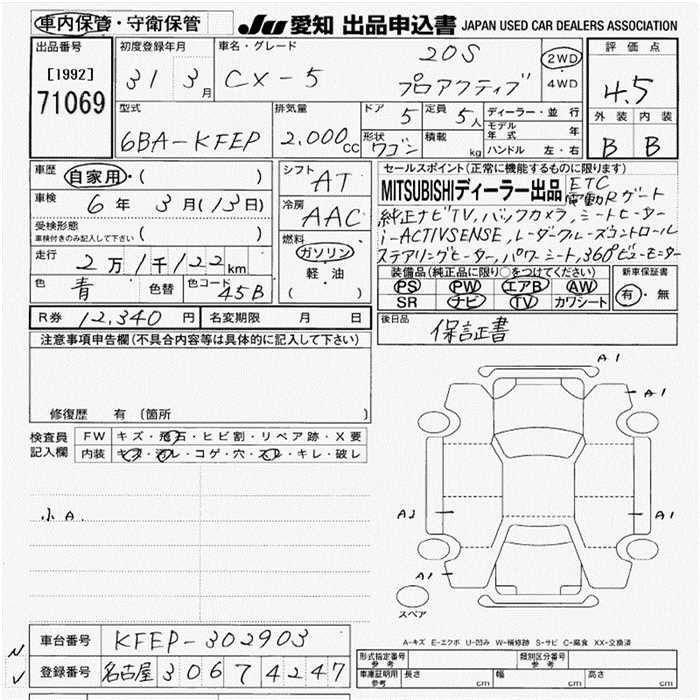 車内保管・守衛保管
JU 愛知 出品申込書 JAPAN USED CAR DEALERS ASSOCIATION
出品番号 初度登録年月 車名・グレード 20S 評価点
[1992] 71069 31 3月 CX-5 プロアクティブ 2WD・4WD 4.5
型式 排気量 ドア 5 定員 5人 ディーラー・並行 外装 内装
6BA-KFEP 2.000cc 形状 ワゴン 積載 kg モデル年式 年 ハンドル 左・右 B B
車歴 自家用・( )
車検 6年3月(13日)
受検形態 車検付きのみ記入して下さい ( )
走行 2万1千122km
色 青 色替 色コード 45B
シフト AT
冷房 AAC
燃料 ガソリン 軽油 ( )
セールスポイント(正常に機能するものに限ります)
MITSUBISHIディーラー出品 ETC 電動Rゲート
純正ナビTV,バックカメラ,シートヒーター
i-ACTIVSENSE,レーダークルーズコントロール
ステアリングヒーター,パワーシート,360°ビューモニター
装備品(純正品に限り○をつけてください) 新車保証書
PS PW エアB AW 有・無
SR ナビ TV カワシート
R券 12,340円 名変期限 月 日
後日品 保証書
注意事項申告欄(不具合内容等は具体的に記入して下さい)
修復歴 有 〔箇所 〕
検査員記入欄 FW キズ・飛石・ヒビ割・リペア跡・X要
内装 キズ・汚レ・コゲ・穴・スレ・キレ・破レ
小A.
A1
A1
A2
A1
A1
スペア
A-キズ E-エクボ U-凹み W-補修跡 S-サビ C-腐食 XX-交換済
車台番号 KFEP-302903
登録番号 名古屋 306 7 4247
形式指定番号 参考 類別区分番号 参考
車庫証明用 参考 長さ cm 幅 cm 高さ cm